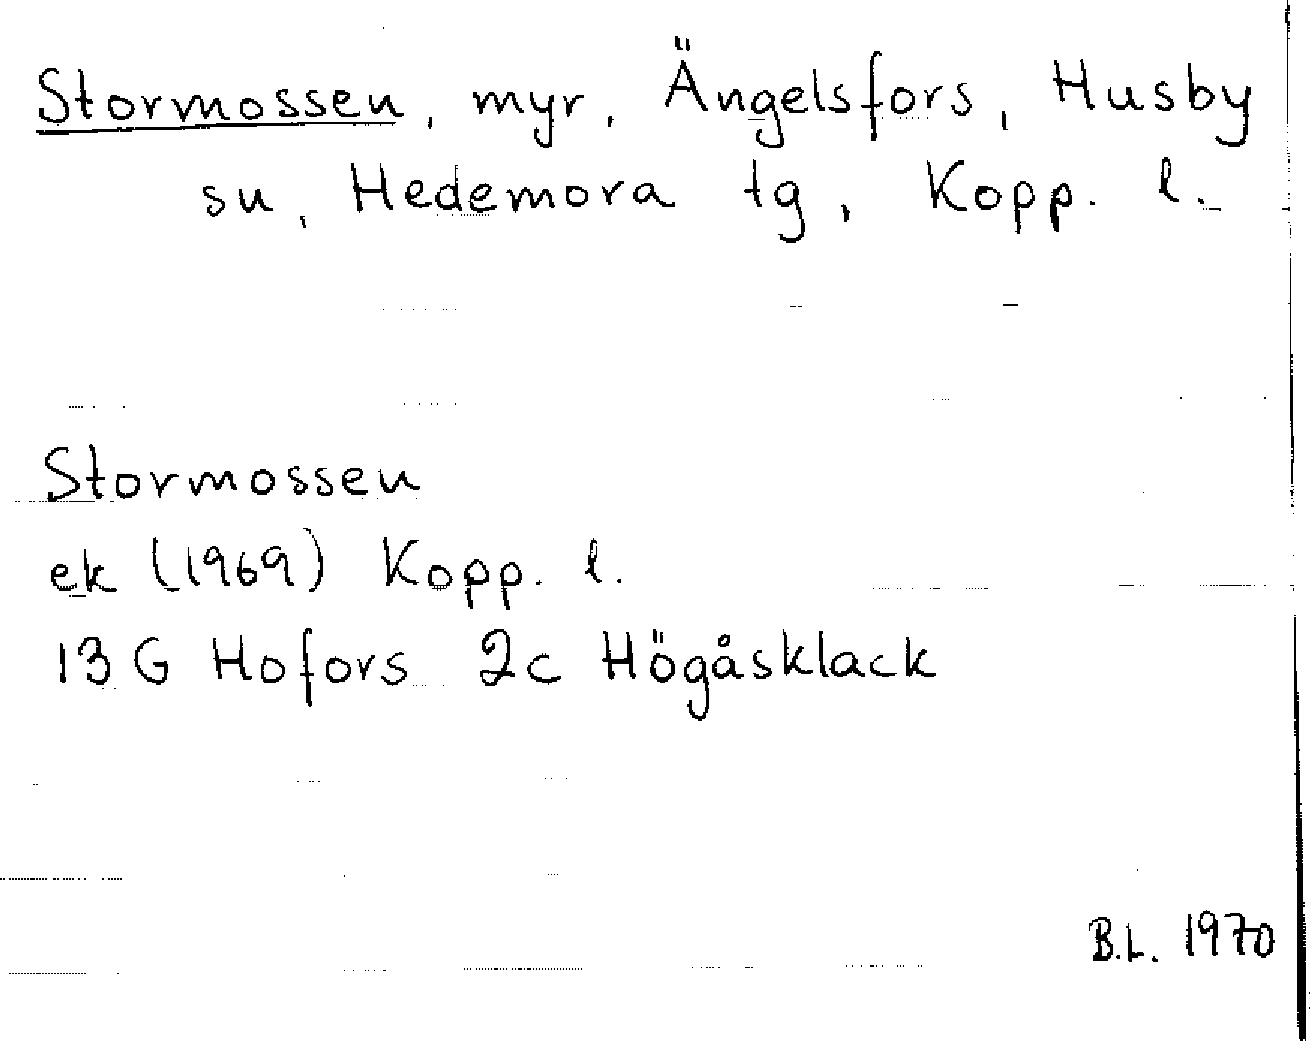 Stormossen, myr, Ängelsfors, Husby
su, Hedemora tg, Kopp. l.
Stormossen
ek (1969) Kopp. l.
13 G Hofors 2c Högåsklack
B.L. 1970